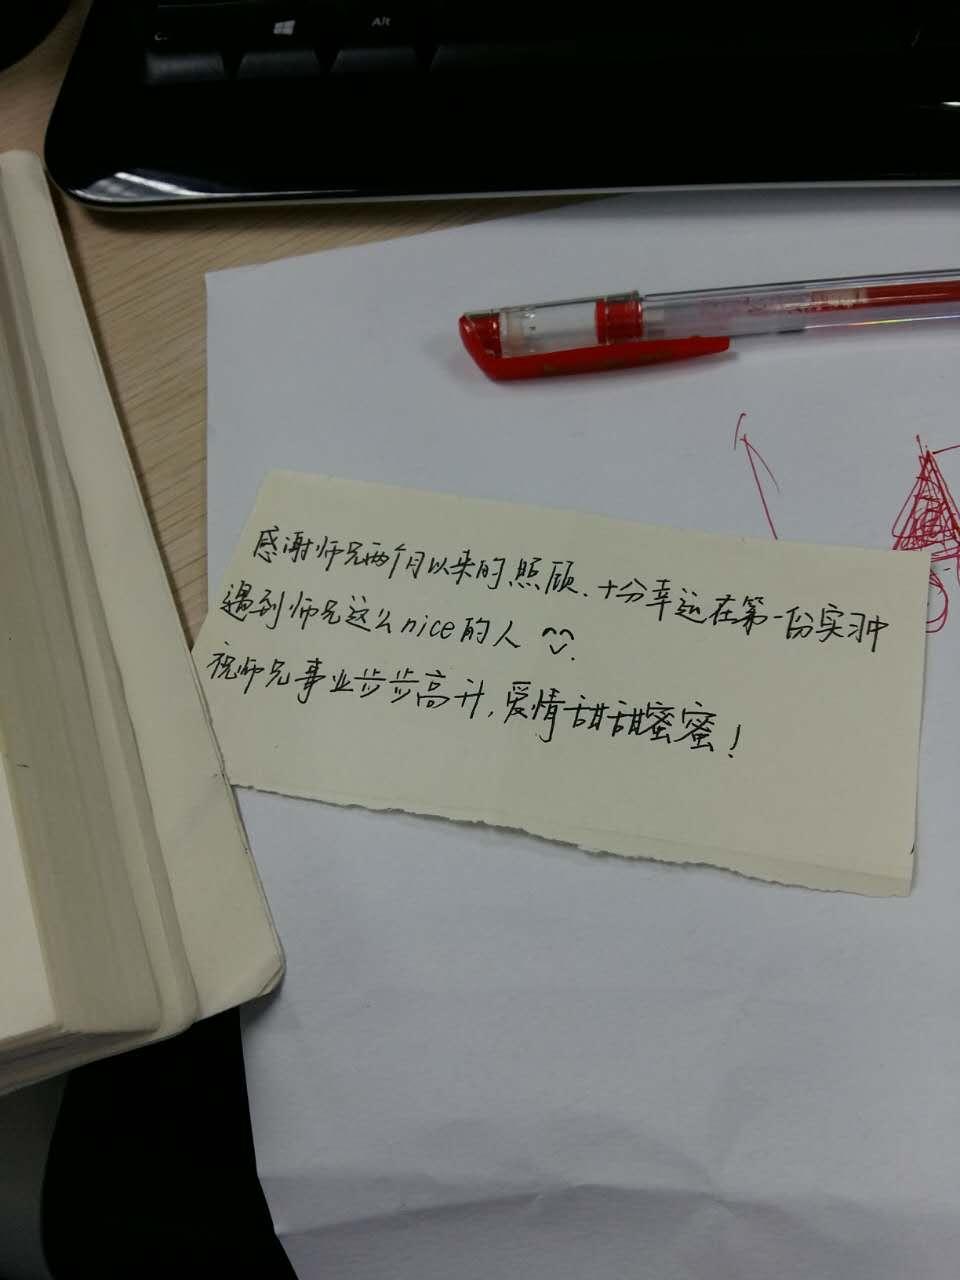 Alt
感谢师兄两个月以来的照顾、十分幸运在第一份实习中
遇到师兄这么nice的人
祝师兄事业步步高升,爱情甜甜蜜蜜!